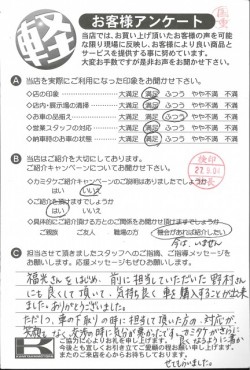 軽
お客様アンケート
当店では、お買い上げ頂いたお客様の声を可能
な限り現場に反映し、お客様により良い商品と
サービスを提供する事に努めています。
大変お手数ですが是非お声をお聞かせ下さい。
A 当店を実際にご利用になった印象をお聞かせ下さい。
◇店の印象 大満足 満足 ふつう やや不満 不満
◇店内・展示場の清掃 大満足 満足 ふつう やや不満 不満
◇お車の品揃え 大満足 満足 ふつう やや不満 不満
◇営業スタッフの対応 大満足 満足 ふつう やや不満 不満
◇納車時のお車の状態 大満足 満足 ふつう やや不満 不満
B 当店はご紹介を大切にしております。
ご紹介キャンペーンについてお聞かせ下さい。
◇カミタケご紹介キャンペーンのご説明はありましたでしょうか
はい いいえ
◇ご紹介を頂けますでしょうか
はい いいえ
◇具体的にご紹介頂ける方とのご関係をお聞かせ頂けますでしょうか
ご親族 ご友人 職場の方 機会があれば紹介したい
今は、いません
C 担当させて頂きましたスタッフへのご指摘、ご指導メッセージを
お願いします。応援メッセージもぜひお願いします。
福光さんをはじめ、前に担当していただいた野村さん
にも良くして頂いて、気持ち良く車を購入することが出来
ました。ありがとうございました。
ただ1つ、車の下取りの時に担当して頂いた方の対応が、
ご協力に心よりお礼を申し上げます。
今後とも宜しくお引き立てご愛顧の程お願い申し上げます。
またのご来店を心からお待ちしております。